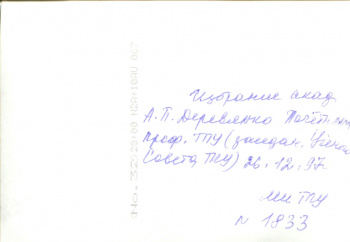 Избрание акад.
А.П. Деревянко Почётным
проф. ТПУ (заседан. Ученого
Совета ТПУ) 26.12.97.
МИ ТПУ
N 1833